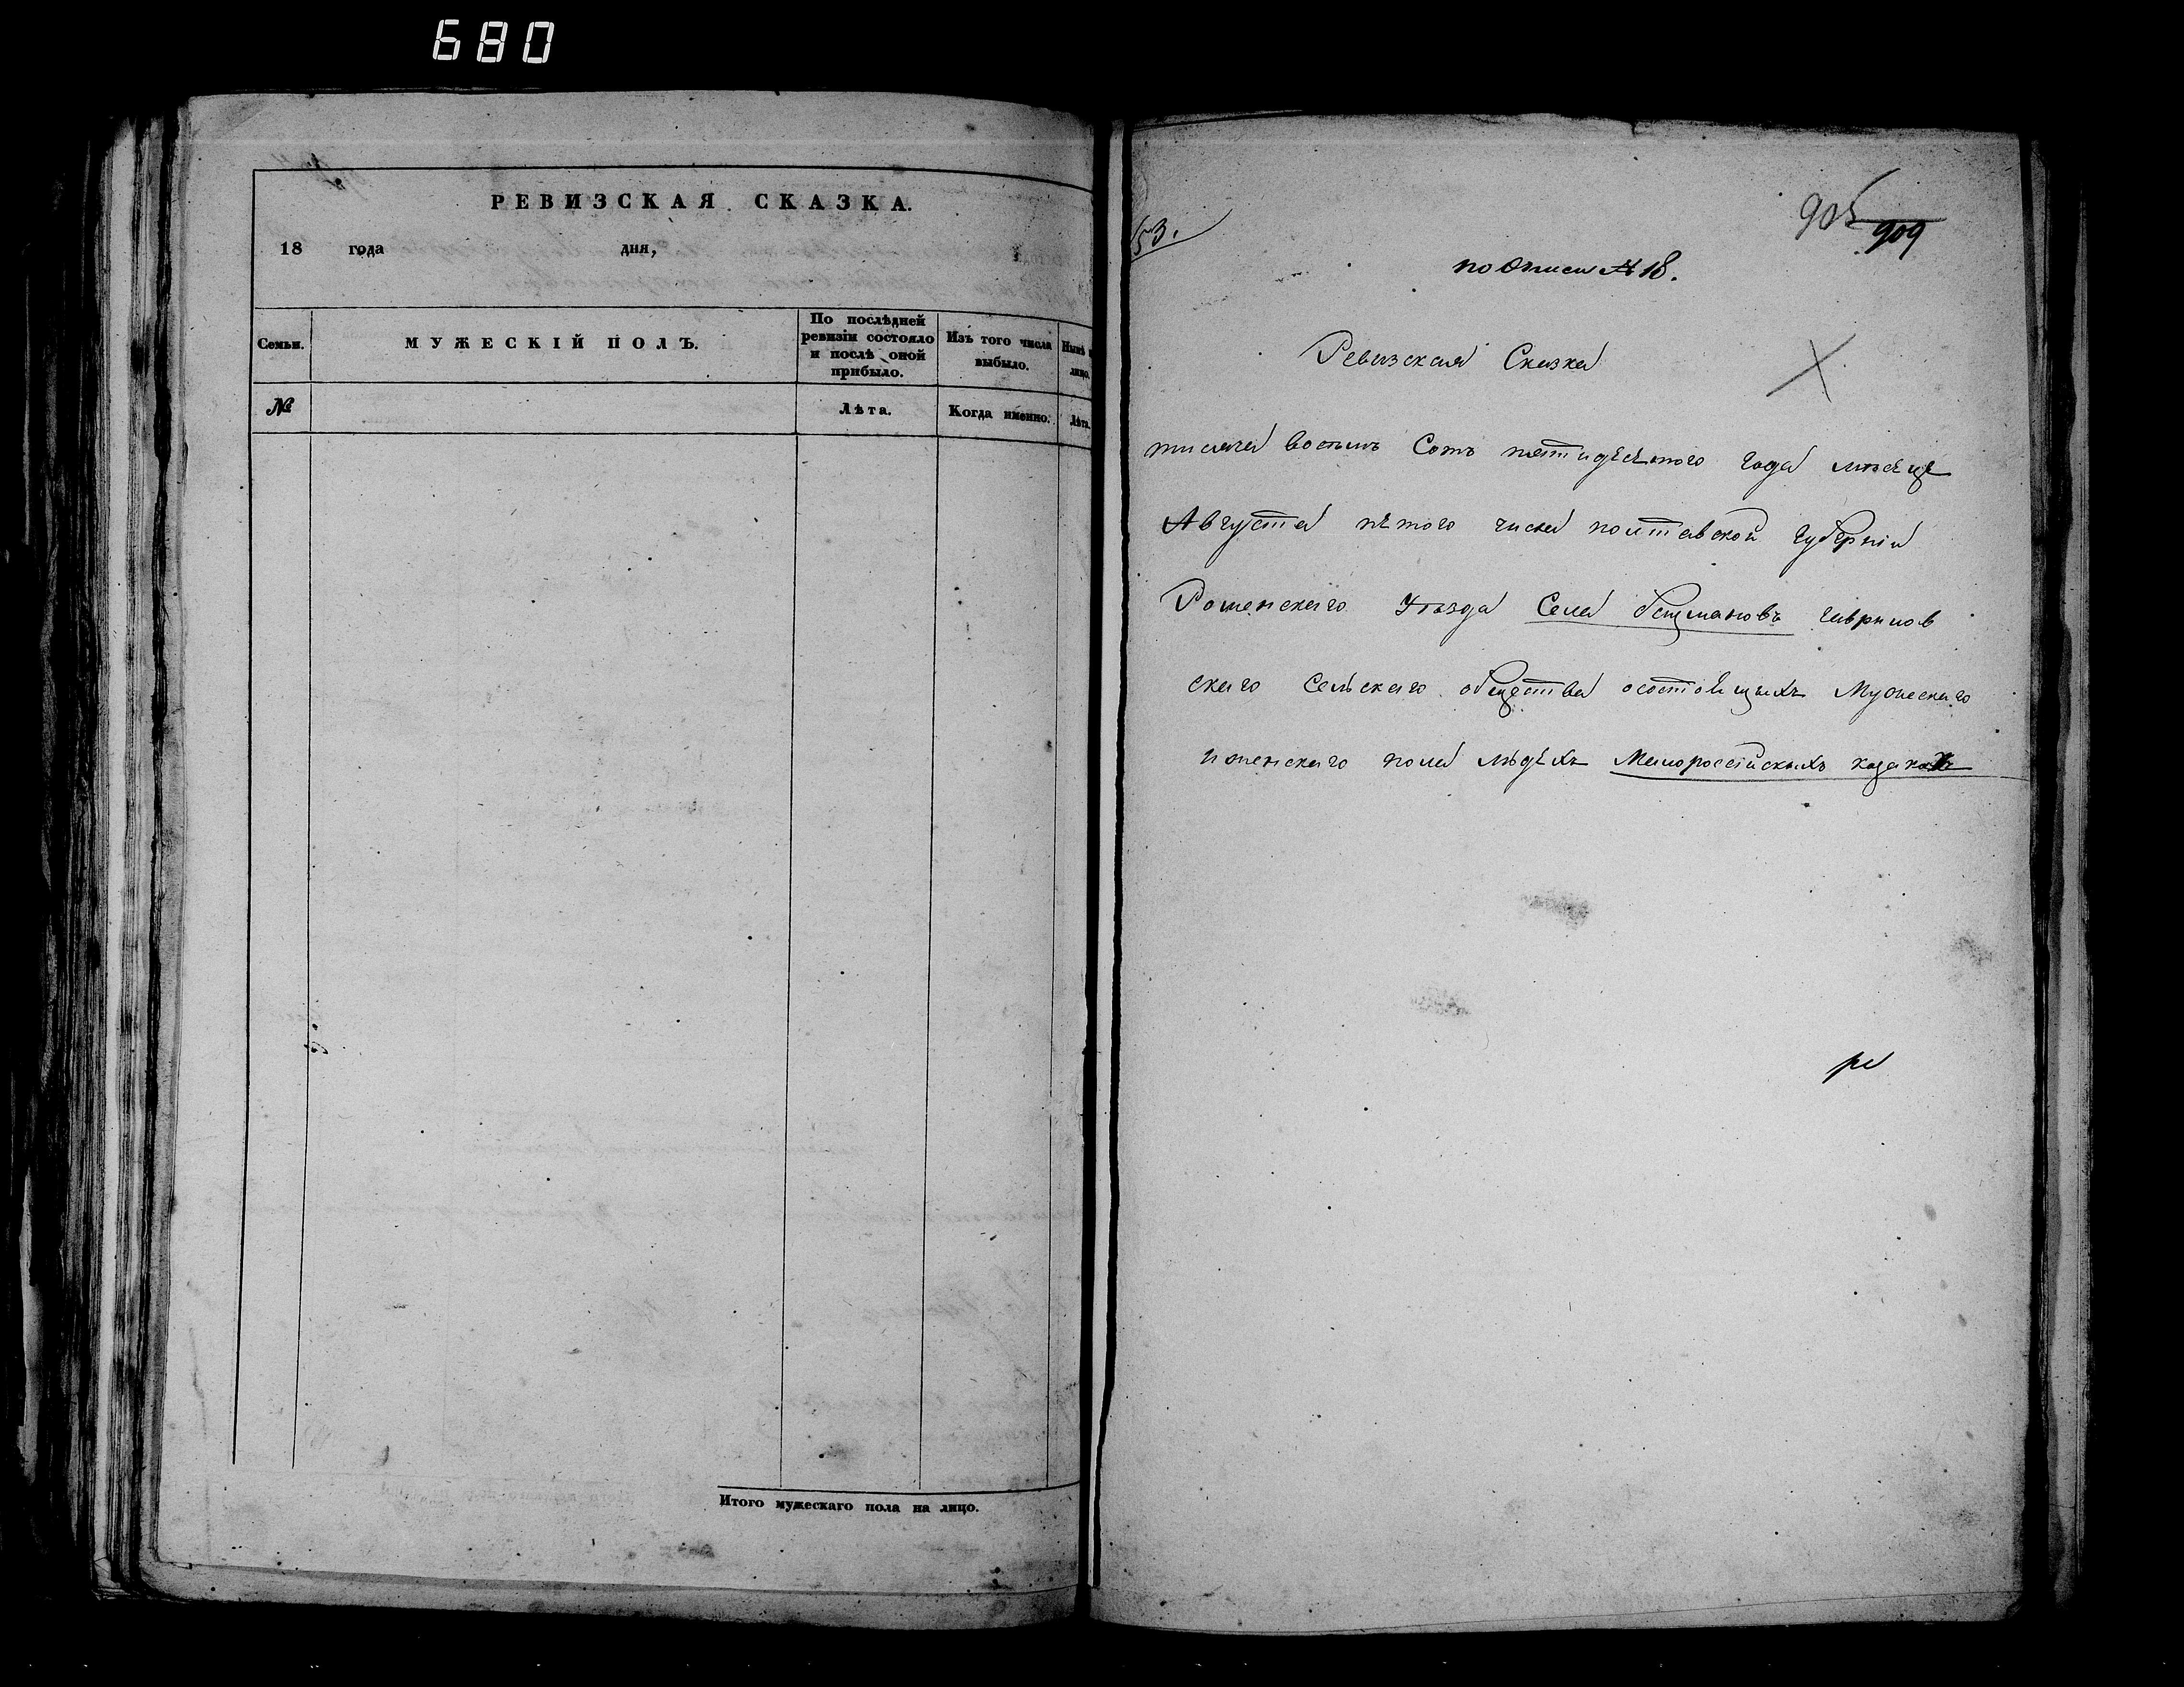 680
РЕВИЗСКАЯ СКАЗКА.
18 года дня,
Семьи.
МУЖЕСКІЙ ПОЛЪ.
По послѣдней ревизіи состояло и послѣ оной прибыло.
Изъ того числа выбыло.
Нынѣ
лицо.
№
Лѣта.
Когда именно.
Лѣта.
Итого мужескаго пола на лицо.
53.
909
по Описи № 18.
Ревизская Сказка
тисяча восемь Сотъ пятидесятого года месяце
Августа пятого числа полтавской губернии
Роменскаго Уѣзда Села гаврилов
скаго Сельскаго общества осостоящихъ Мужескаго
иженскаго пола людехъ Малороссійскихъ казаках